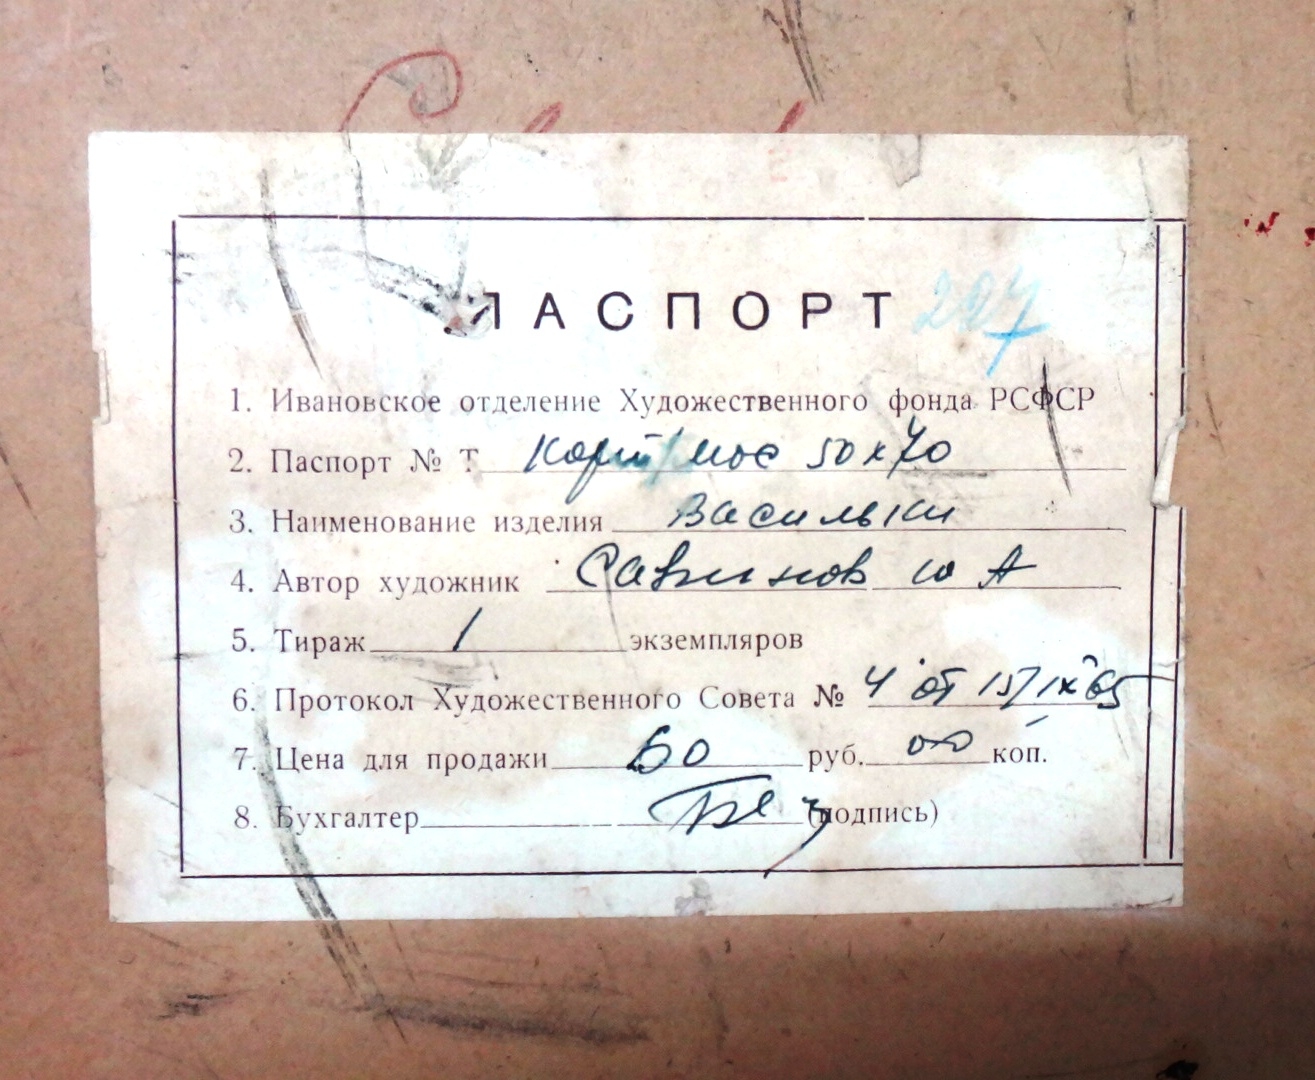 ПАСПОРТ 207
1. Ивановское отделение Художественного фонда РСФСР
2. Паспорт № Т карт/мос 50х70
3. Наименование изделия Васильки
4. Автор художник Савинов Ю А
5. Тираж 1 экземпляров
6. Протокол Художественного Совета № 4 от 15/IX 65
7. Цена для продажи 60 руб. 00 коп.
8. Бухгалтер (подпись)